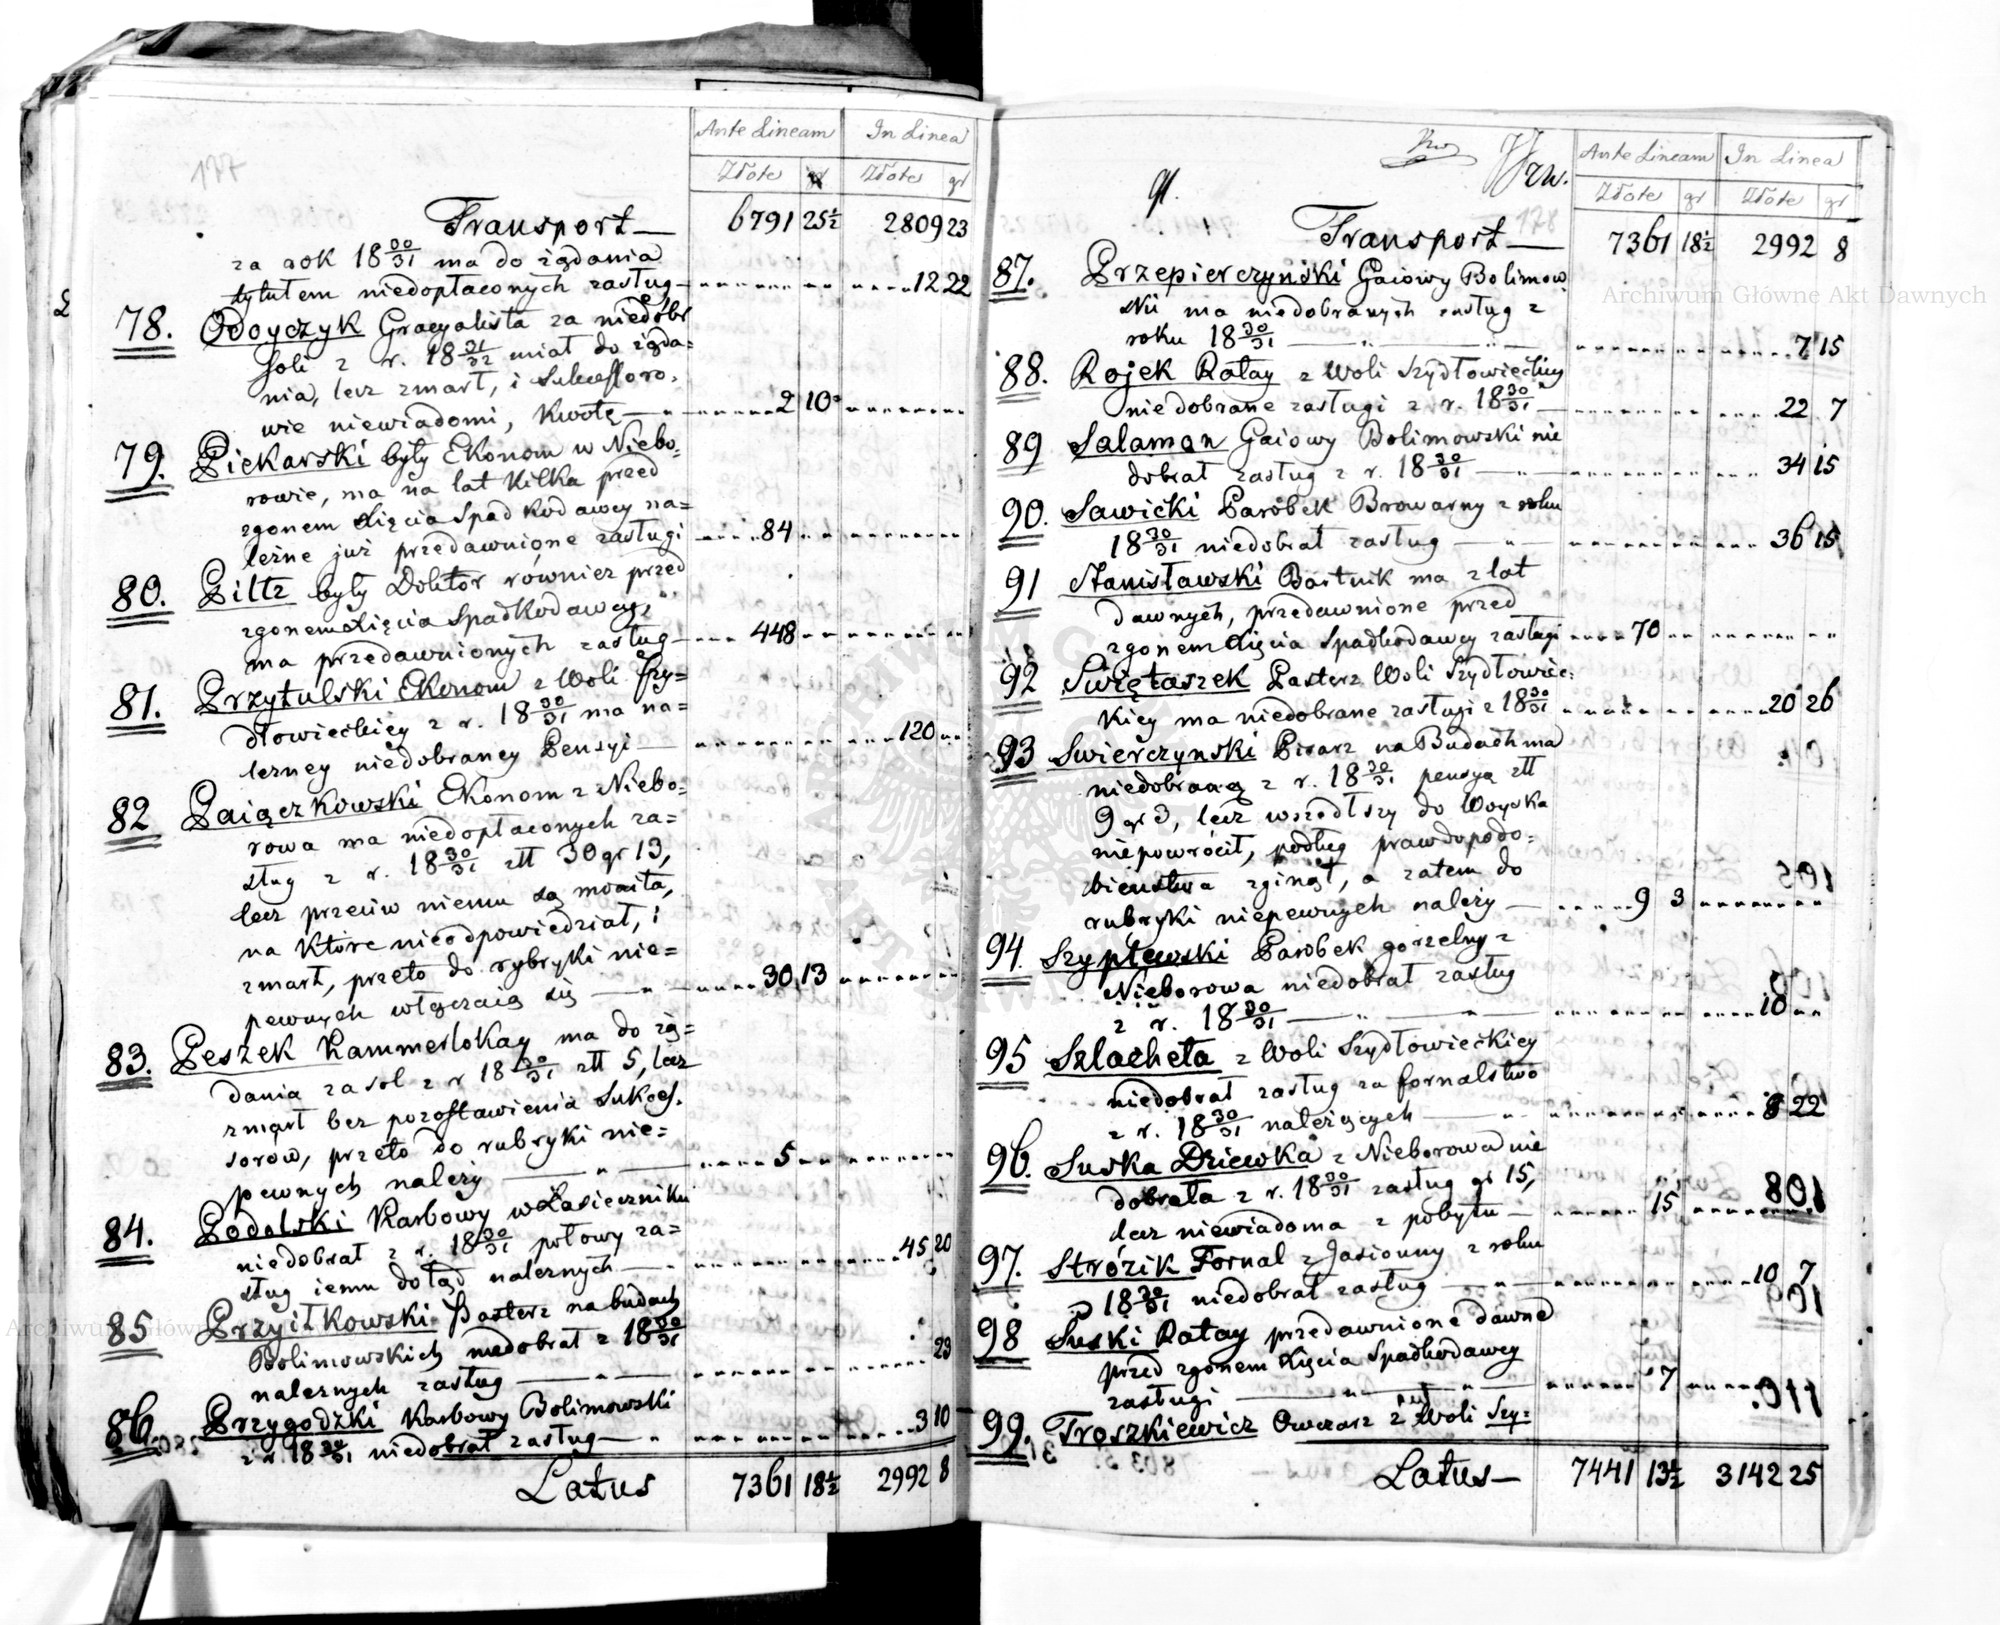 177
Ante Lineam In Linea
Złote gr Złote gr
Transport — 6791 25½ 2809 23
za rok 18 30/31 ma do żądania
tytułem niedopłaconych zasług 12 22
78. Odoyczyk Gracyalista za niedobr
soli z r. 18 31/32 miał do żąda=
nia, lecz zmarł, i Sukcessoro,
wie niewiadomi, Kwotę — 2 10
79. Piekarski były Ekonom w Niebo,
rowie, ma na lat Kilka przed
zgonem Xięcia Spadkodawcy na=
leżne już przedawnione zasługi 84
80. Piltz były Doktór równierz przed
zgonem Xięcia Spadkodawcy,
ma przedawnionych zasług — 448
81. Przytulski Ekonom z Woli Szy=
dłowieckiey z r. 18 30/31 ma na=
leżney niedobraney Pensyi — 120
82 Paiączkowski Ekonom z Niebo=
rowa ma niedopłaconych za=
sług z r. 18 30/31 złł 30 gr 13,
lecz przeciw niemu są monita,
na Które nieodpowiedział, i
zmarł, przeto do rybryki nie=
pewnych włączaią się — 30 13
83. Peszek Kammerlokay ma do żą=
dania za sol z r 18 30/31 złł 5, lecz
zmarł bez pozostawienia Sukces,
sorów, przeto do rubryki nie=
pewnych należy — 5
84. Podolski Karbowy w Łasieczniku
niedobrał z r. 18 30/31 połowy za=
sług iemu dotąd należnych — 45 20
85 Przyiłkowski Pasterz na budach
Bolimowskich niedobrał z 18 30/31
należnych zasług — 29
86. Przygodzki Karbowy Bolimowski
z r. 18 30/31 niedobrał zasług — 3 10
Latus 7361 18½ 2992 8
178
Ante Lineam In Linea
Złote gr Złote gr
Transport — 7361 18½ 2992 8
87. Przepierczyński Gaiowy Bolimow,
ski ma niedobranych zasług z
roku 18 30/31 — 7 15
88. Rojek Ratay z Woli Szydłowieckiey
niedobrane zasługi z r. 18 30/31 — 22 7
89 Salaman Gaiowy Bolimowski nie
dobrał zasług z r. 18 30/31 — 34 15
90. Sawicki Parobek Browarny z roku
18 30/31 niedobrał zasług — 36 15
91 Stanisławski Bartnik ma z lat
dawnych, przedawnione przed
zgonem Xięcia Spadkodawcy zasługi 70
92 Swiętaszek Pasterz Woli Szydłowiec:
Kiey ma niedobrane zasługi z 18 30/31 20 26
93 Swierczynski Pisarz na Budach ma
niedobraną z r. 18 30/31 pensyą złł
9 gr 3, lecz wszedłszy do Woyska
niepowrócił, podług prawdopodo=
bieństwa zginął, a zatem do
rubryki niepewnych należy — 9 3
94. Szyplewski Parobek gorzelny z
Nieborowa niedobrał zasług
z r. 18 30/31 — 10
95 Szlacheta z Woli Szydłowieckiey
niedobrał zasług za fornalstwo
z r. 18 30/31 należących — 8 22
96. Suska Dziewka z Nieborowa nie
dobrała z r. 18 30/31 zasług gr 15,
lecz niewiadoma z pobytu — 15
97. Stróżik Fornal z Jasionny z roku
18 30/31 niedobrał zasług — 10 7
98 Suski Rataj przedawnione dawne
przed zgonem Xięcia Spadkodawcy
zasługi — 7
99. Troszkiewicz Owczarz z Woli Szy=
Latus — 7441 13½ 3142 25
Archiwum Główne Akt Dawnych